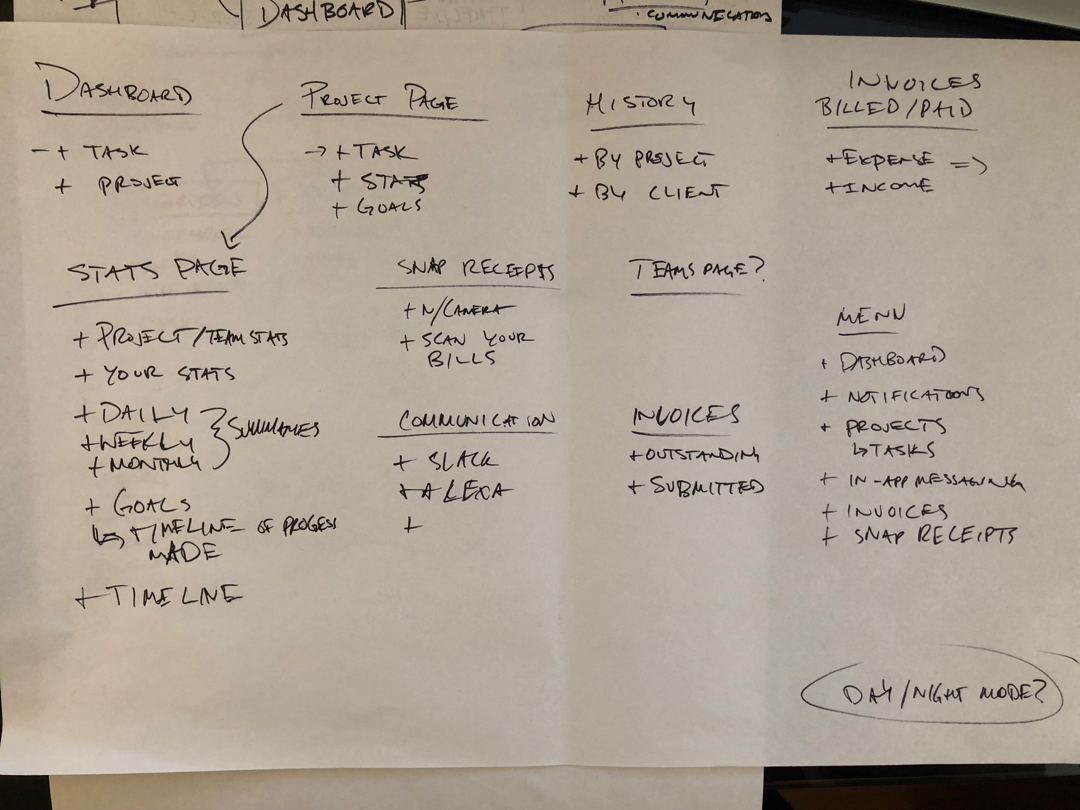 DASHBOARD
COMMUNICATION
DASHBOARD
- + TASK
+ PROJECT
PROJECT PAGE
→ + TASK
+ STATS
+ GOALS
HISTORY
+ BY PROJECT
+ BY CLIENT
INVOICES
BILLED/PAID
+ EXPENSE =>
+ INCOME
STATS PAGE
+ PROJECT/TEAM STATS
+ YOUR STATS
+ DAILY
+ WEEKLY } SUMMARIES
+ MONTHLY
+ GOALS
↳ + TIMELINE OF PROGESS
MADE
+ TIMELINE
SNAP RECEIPTS
+ W/CAMERA
+ SCAN YOUR
BILLS
COMMUNICATION
+ SLACK
+ ALEXA
+
TEAMS PAGE?
INVOICES
+ OUTSTANDING
+ SUBMITTED
MENU
+ DASHBOARD
+ NOTIFICATIONS
+ PROJECTS
↳ TASKS
+ IN-APP MESSAGING
+ INVOICES
+ SNAP RECEIPTS
DAY/NIGHT MODE?